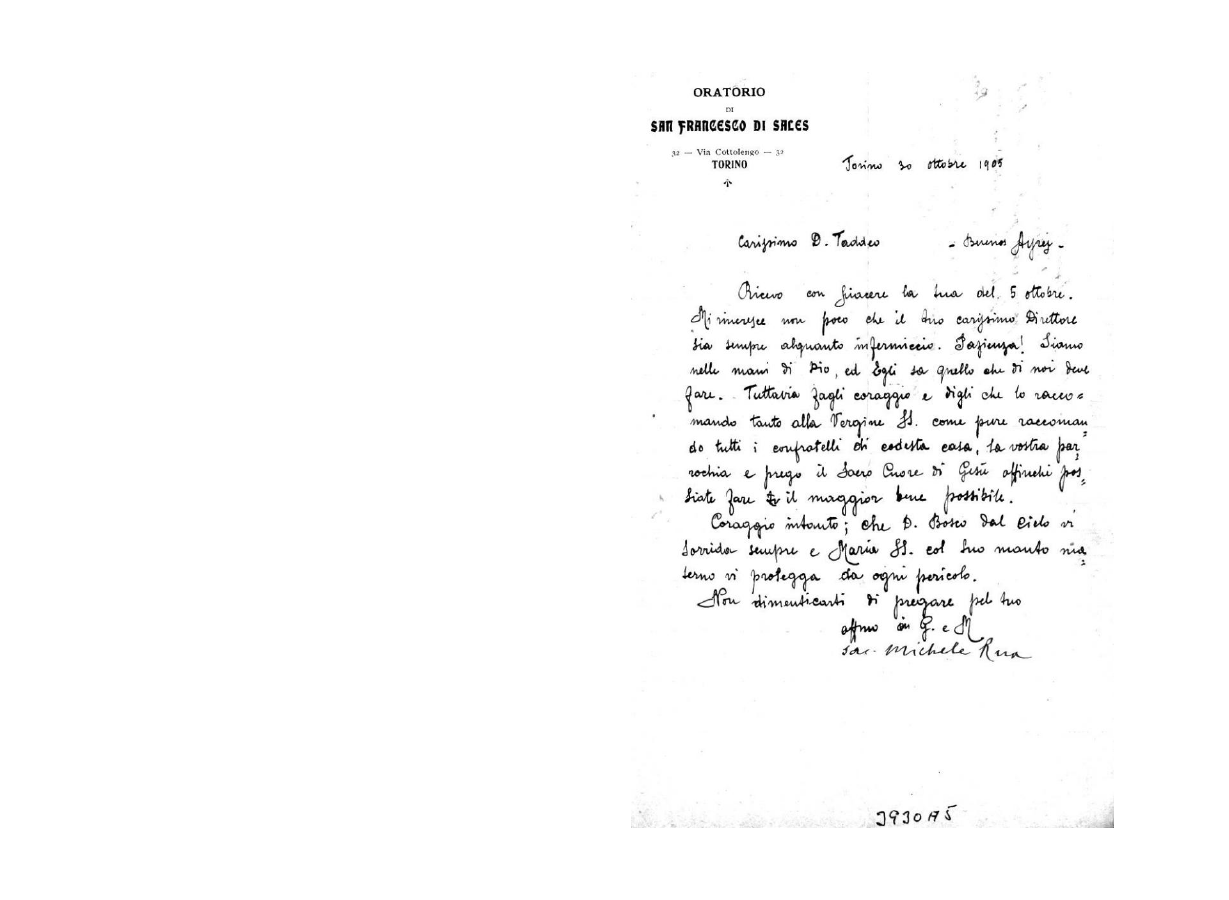 ORATORIO
DI
SAN FRANCESCO DI SALES
32 — Via Cottolengo — 32
TORINO
Torino 30 ottobre 1905
Carissimo D. Taddeo - Buenos Ayres -
Ricevo con piacere la tua del 5 ottobre.
Mi rincresce non poco che il tuo carissimo Direttore
sia sempre alquanto infermiccio. Pazienza! Siamo
nelle mani di Dio, ed Egli sa quello che di noi deve
fare. Tuttavia fagli coraggio e digli che lo racco=
mando tanto alla Vergine SS. come pure raccoman=
do tutti i confratelli di codesta casa, la vostra par=
rochia e prego il Sacro Cuore di Gesù affinchè pos=
siate fare il maggior bene possibile.
Coraggio intanto; che D. Bosco dal Cielo vi
sorrida sempre e Maria SS. col suo manto ma=
terno vi protegga da ogni pericolo.
Non dimenticarti di pregare pel tuo
affmo in G. e M.
Sac. Michele Rua
3930A5